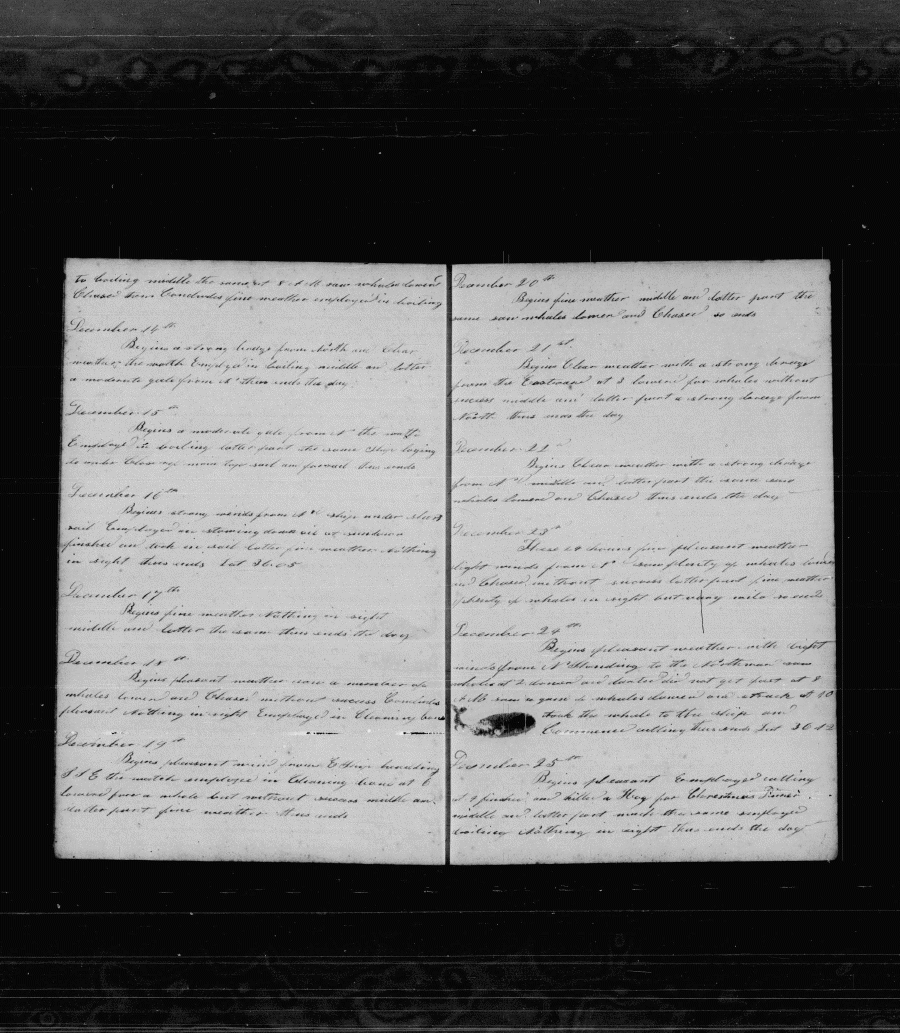 to boiling middle the same at 8 A M saw whales lowerd
Chased some Concludes fine weather employed in boiling
December 14th
Begins a strong breeze from North and Clear
weather the watch Employd in boiling middle and latter
a moderate gale from N thus ends the day
December 15th
Begins a moderate gale from N the watch
Employd in boiling latter part the same ship laying
to under Close main top sail and forsail thus ends
December 16th
Begins strong winds from N ship under short
sail Employed in stowing down oil at sundown
finished and took in sail latter fine weather Nothing
in sight thus ends Lat 36.05
December 17th
Begins fine weather Nothing in sight
middle and latter the same thus ends the day
December 18th
Begins pleasant weather saw a number of
whales lowerd and Chased without success Concludes
pleasant Nothing in sight Employed in Cleaning bone
December 19th
Begins pleasant wind from E Ship heading
S S E the watch employed in Cleaning bone at 6
lowered for a whale but without success middle and
latter part fine weather thus ends
December 20th
Begins fine weather middle and latter part the
same saw whales lowerd and Chased so ends
December 21st
Begins Clear weather with a strong breeze
from the Eastward at 3 lowerd for whales without
success middle and latter part a strong breeze from
North thus ends the day
December 22
Begins Clear weather with a strong breeze
from N middle and latter part the same saw
whales lowerd and Chased thus ends the day
December 23
These 24 hours fine pleasant weather
light winds from N saw plenty of whales lowerd
and Chased without success latter part fine weather
plenty of whales in sight but very wild so ends
December 24th
Begins pleasant weather with light
winds from N Standing to the Northward saw
whales at 2 lowerd and did not get fast at 8
A M saw a gain whales lowerd and struck at 10
took the whale to the ship and
Commenced cutting thus ends Lat 36.12
December 25th
Begins pleasant Employed cutting
at 4 finished and killed a Hog for Christmas Dinner
middle and latter part much the same employed
boiling Nothing in sight thus ends the day